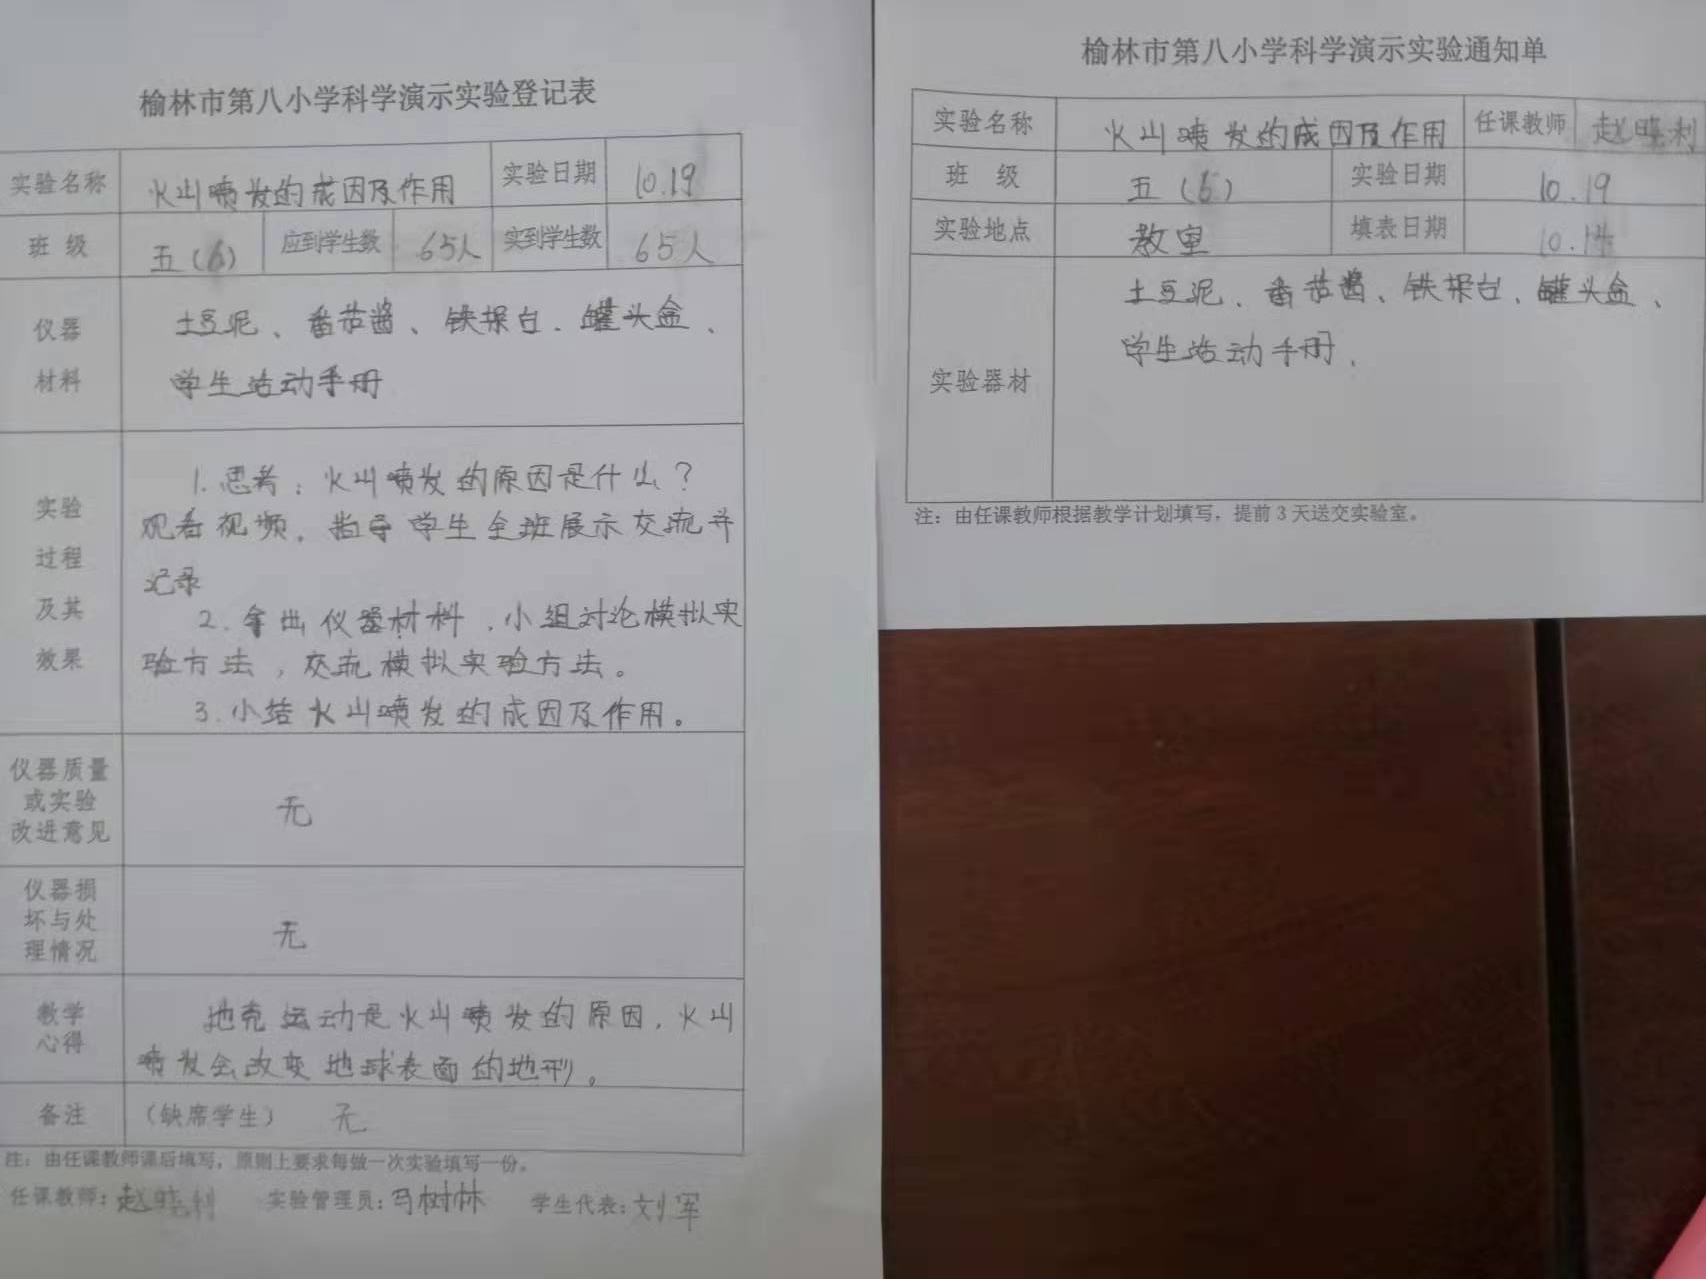 榆林市第八小学科学演示实验登记表
实验名称 火山喷发的成因及作用 实验日期 10.19
班 级 五(6) 应到学生数 65人 实到学生数 65人
仪器
材料
土豆泥、番茄酱、铁架台、罐头盒、
学生活动手册
实验
过程
及其
效果
1.思考:火山喷发的原因是什么?
观看视频,指导学生全班展示交流并
记录
2.拿出仪器材料,小组讨论模拟实
验方法,交流模拟实验方法。
3.小结火山喷发的成因及作用。
仪器质量
或实验
改进意见
无
仪器损
坏与处
理情况
无
教学
心得
地壳运动是火山喷发的原因,火山
喷发会改变地球表面的地形。
备注 (缺席学生) 无
注:由任课教师课后填写,原则上要求每做一次实验填写一份。
任课教师:赵晓利 实验管理员:马树林 学生代表:刘军
榆林市第八小学科学演示实验通知单
实验名称 火山喷发的成因及作用 任课教师 赵晓利
班 级 五(6) 实验日期 10.19
实验地点 教室 填表日期 10.14
实验器材
土豆泥、番茄酱、铁架台、罐头盒、
学生活动手册.
注:由任课教师根据教学计划填写,提前3天送交实验室。